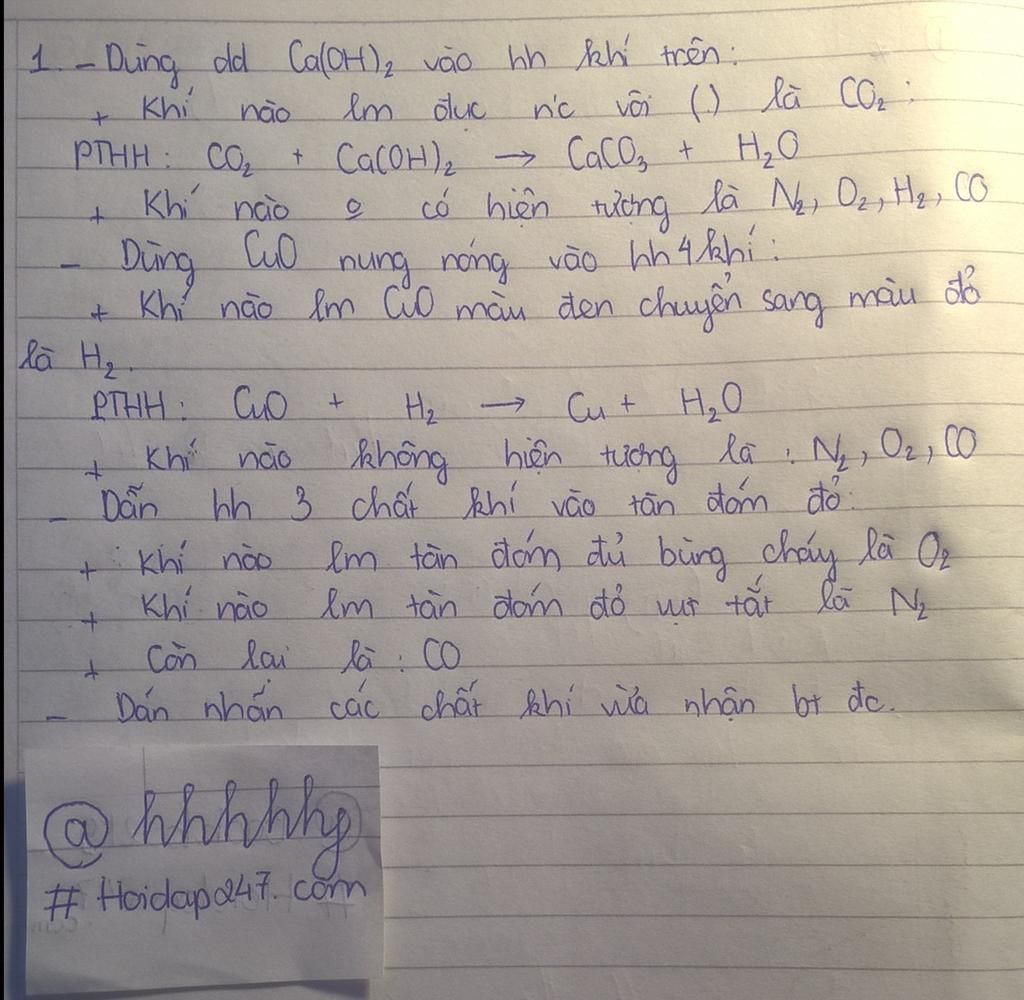 1. - Dùng dd Ca(OH)₂ vào hh khí trên:
+ Khí nào lm đục n'c vôi (.) là CO₂ :
PTHH : CO₂ + Ca(OH)₂ → CaCO₃ + H₂O
+ Khí nào o có hiện tượng là N₂, O₂, H₂, CO
- Dùng CuO nung nóng vào hh 4 khí :
+ Khí nào lm CuO màu đen chuyển sang màu đỏ
là H₂.
PTHH : CuO + H₂ → Cu + H₂O
+ Khí nào không hiện tượng là : N₂, O₂, CO
- Dẫn hh 3 chất khí vào tàn đóm đỏ :
+ Khí nào lm tàn đóm đủ bùng cháy là O₂
+ Khí nào lm tàn đóm đỏ vụt tắt là N₂
+ Còn lại là : CO
- Dán nhấn các chất khí vừa nhận bt đc.
@ hhhhhg
# Hoidap247.com